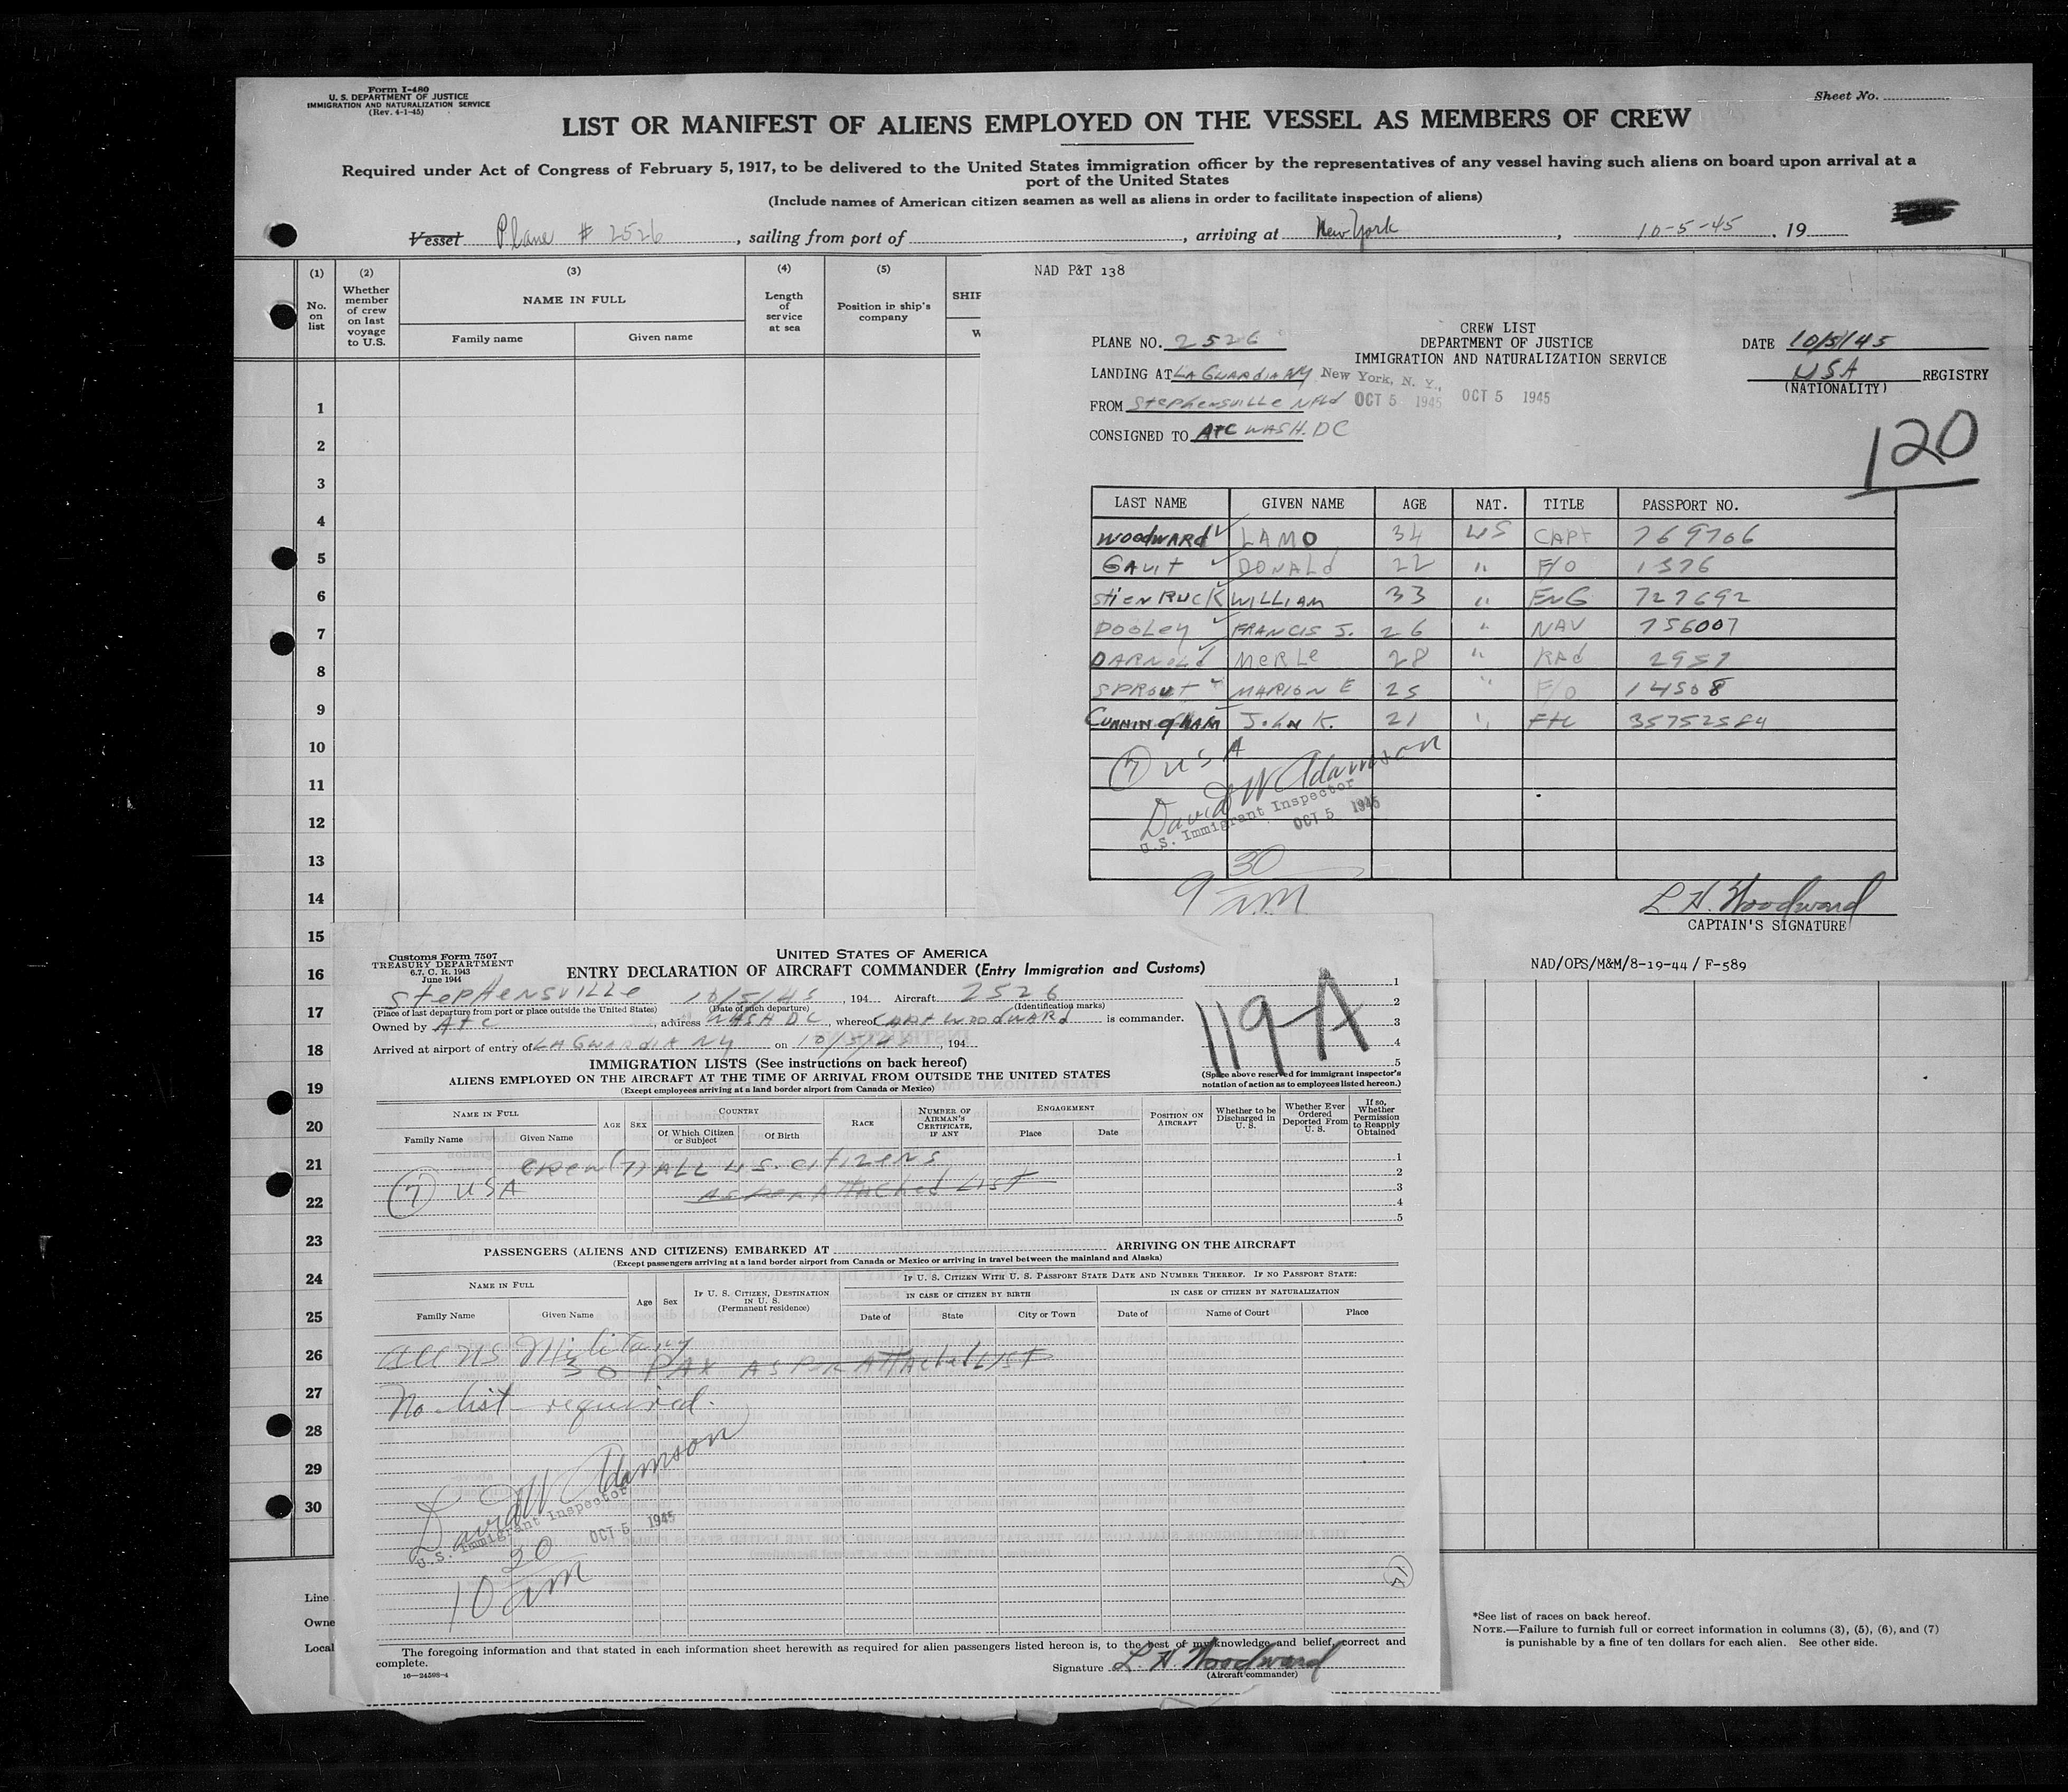 Form I-480
U. S. DEPARTMENT OF JUSTICE
IMMIGRATION AND NATURALIZATION SERVICE
(Rev. 4-1-45)
Sheet No.
LIST OR MANIFEST OF ALIENS EMPLOYED ON THE VESSEL AS MEMBERS OF CREW
Required under Act of Congress of February 5, 1917, to be delivered to the United States immigration officer by the representatives of any vessel having such aliens on board upon arrival at a
port of the United States
(Include names of American citizen seamen as well as aliens in order to facilitate inspection of aliens)
Vessel Plane # 2526, sailing from port of , arriving at New York, 10-5-45, 19
(1) (2) (3) (4) (5)
No. on list
Whether member of crew on last voyage to U.S.
NAME IN FULL
Family name Given name
Length of service at sea
Position in ship's company
SHIP
W
1
2
3
4
5
6
7
8
9
10
11
12
13
14
15
16
17
18
19
20
21
22
23
24
25
26
27
28
29
30
Line
Owne
Local
NAD P&T 138
CREW LIST
DEPARTMENT OF JUSTICE
IMMIGRATION AND NATURALIZATION SERVICE
PLANE NO. 2526
DATE 10/5/45
LANDING AT LA GUARDIA NY New York, N. Y.,
USA REGISTRY
(NATIONALITY)
FROM Stephensville NFld OCT 5 1945 OCT 5 1945
CONSIGNED TO ATC WASH. DC
120
LAST NAME GIVEN NAME AGE NAT. TITLE PASSPORT NO.
WOODWARd LAMO 34 US CAPt 769706
GAUIT DONALd 22 " F/O 1376
StienRUCK WILLIAM 33 " ENG 727692
DOOLey FRANCIS J. 26 " NAV 756007
DARNOLd MeRLe 28 " RAd 2957
SPROUT MARION E 25 " F/O 14508
CUNNINGHAM JohN K. 21 " FtC 35752584
(7) USA
David W Adamson
U.S. Immigrant Inspector
OCT 5 1945
9 30 am
L. H. Woodward
CAPTAIN'S SIGNATURE
NAD/OPS/M&M/8-19-44 / F-589
Customs Form 7507
TREASURY DEPARTMENT
6.7, C. R. 1943
June 1944
UNITED STATES OF AMERICA
ENTRY DECLARATION OF AIRCRAFT COMMANDER (Entry Immigration and Customs)
StepHensville 10/5/45, 194 Aircraft 2526
(Place of last departure from port or place outside the United States) (Date of such departure) (Identification marks)
Owned by Atc, address WASH DC, whereof CAPt WOODWARd is commander.
Arrived at airport of entry of LA GUARdIA NY on 10/5/45, 194
119A
1
2
3
4
5
(Space above reserved for immigrant inspector's notation of action as to employees listed hereon.)
IMMIGRATION LISTS (See instructions on back hereof)
ALIENS EMPLOYED ON THE AIRCRAFT AT THE TIME OF ARRIVAL FROM OUTSIDE THE UNITED STATES
(Except employees arriving at a land border airport from Canada or Mexico)
NAME IN FULL
Family Name Given Name
AGE SEX
COUNTRY
Of Which Citizen or Subject Of Birth
RACE
NUMBER OF AIRMAN'S CERTIFICATE, IF ANY
ENGAGEMENT
Place Date
POSITION ON AIRCRAFT
Whether to be Discharged in U. S.
Whether Ever Ordered Deported From U. S.
If so, Whether Permission to Reapply Obtained
CREW (7) ALL U.S. CItIZENS
(7) USA
AS PER AttACHed LIST
1
2
3
4
5
PASSENGERS (ALIENS AND CITIZENS) EMBARKED AT ARRIVING ON THE AIRCRAFT
(Except passengers arriving at a land border airport from Canada or Mexico or arriving in travel between the mainland and Alaska)
NAME IN FULL
Family Name Given Name
Age Sex
IF U. S. CITIZEN, DESTINATION IN U. S. (Permanent residence)
IF U. S. CITIZEN WITH U. S. PASSPORT STATE DATE AND NUMBER THEREOF. IF NO PASSPORT STATE:
IN CASE OF CITIZEN BY BIRTH
IN CASE OF CITIZEN BY NATURALIZATION
Date of State City or Town Date of Name of Court Place
All US Military
30 PAX AS PER AttAched LIST
No list required.
David W Adamson
U.S. Immigrant Inspector
OCT 5 1945
10 20 am
The foregoing information and that stated in each information sheet herewith as required for alien passengers listed hereon is, to the best of my knowledge and belief, correct and
complete.
16—24598-4
Signature L. H Woodward
(Aircraft commander)
*See list of races on back hereof.
NOTE.—Failure to furnish full or correct information in columns (3), (5), (6), and (7)
is punishable by a fine of ten dollars for each alien. See other side.